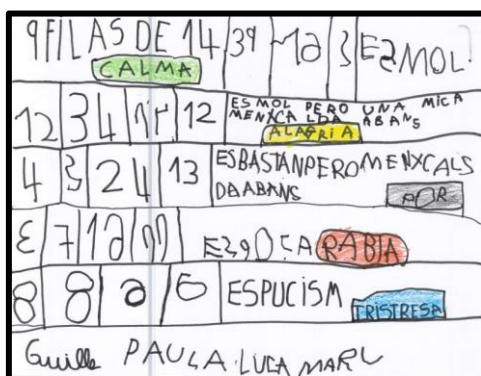 9 FILAS DE 14 39 Ma 3 ESMOL
CALMA
12 34 12 ES MOL PERO UNA MICA
MENXCA LDA ABANS
ALAGRIA
4 3 24 13 ESBASTANPEROMENXCALS
DAABANS
POR
3 7 19 ESPOCA RABIA
8 8 6 ESPUCISM
TRISTRESA
Guille PAULA LUCA MARC